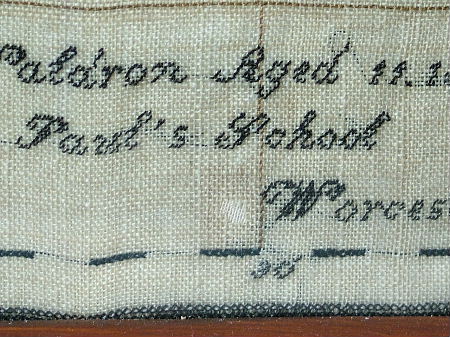 Paldron Aged 11.1
Paul's School
Worces